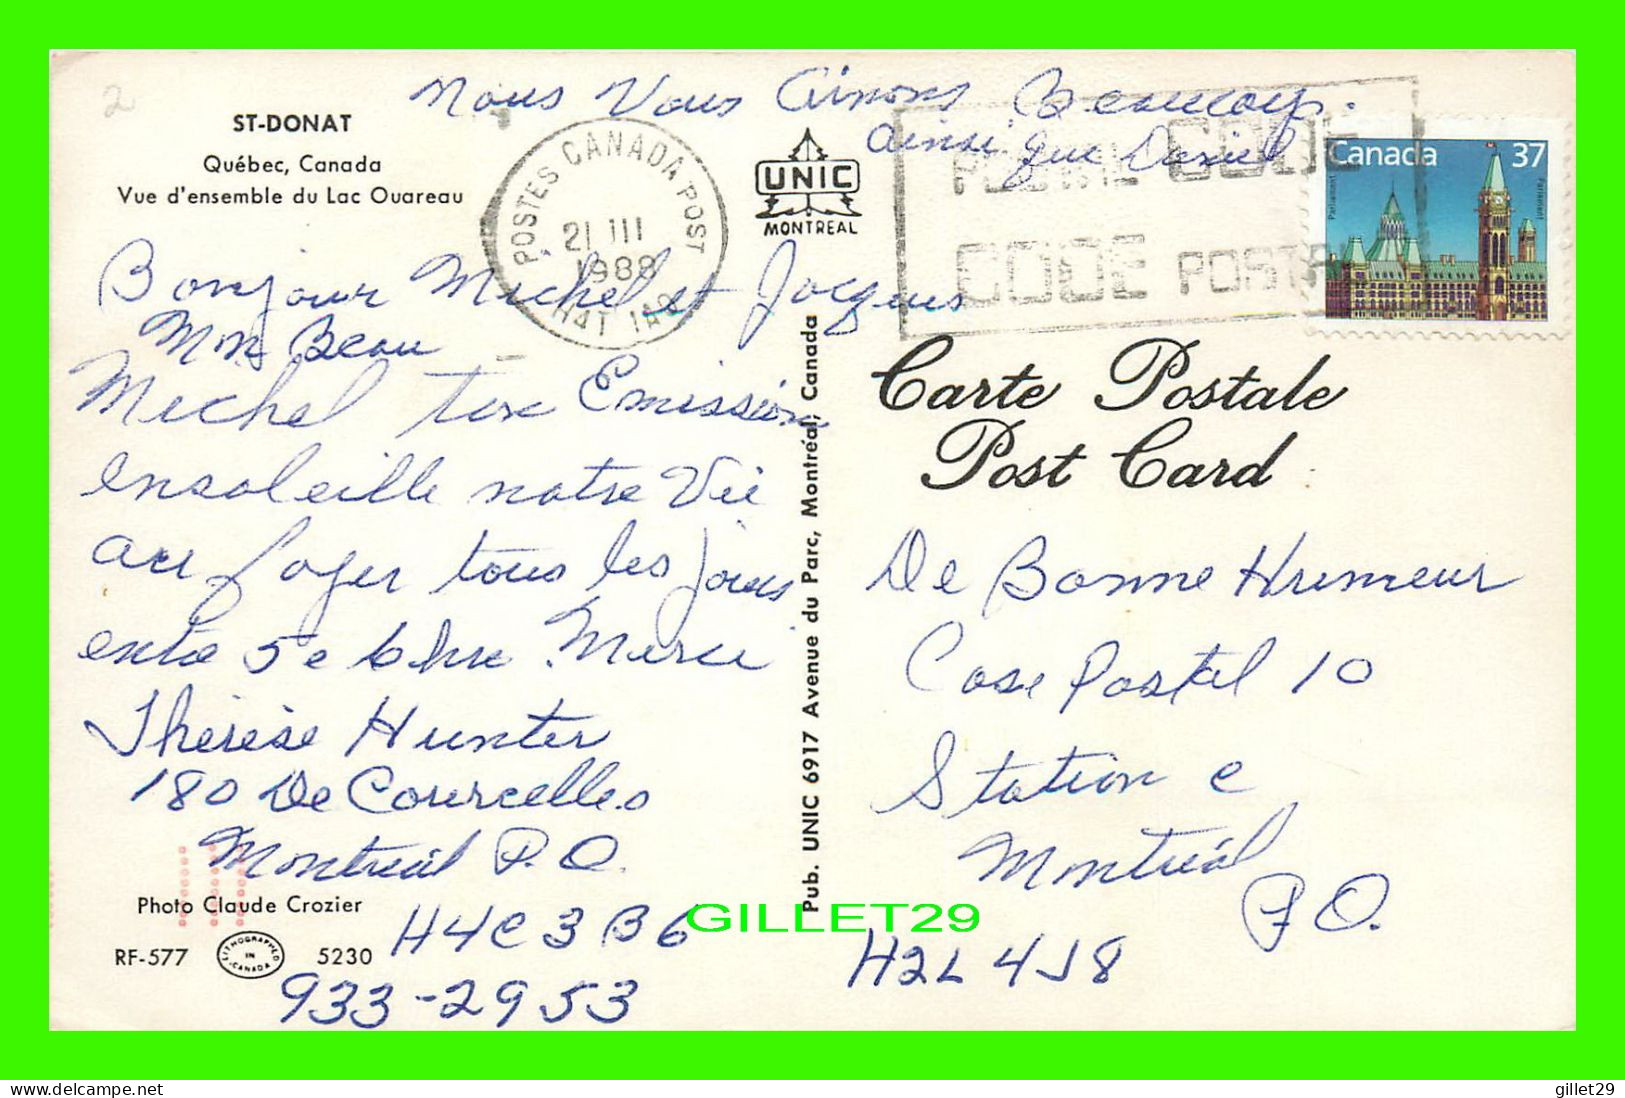 2
ST-DONAT
Québec, Canada
Vue d'ensemble du Lac Ouareau
Nous Vous Aimons Beaucoup.
ainsi que Daniel
POSTES CANADA POST
21 III
1988
UNIC
MONTREAL
POSTAL CODE
CODE POSTAL
Canada 37
Parliament
Parlement
Bonjour Michel et Jacques
Mon Beau
Michel ton Emission
ensoleille notre Vie
au foyer tous les jours
entre 5 e 6 hre Merci
Thérèse Hunter
180 De Courcelles
Montreal P.Q.
H4C 3B6
933-2953
Photo Claude Crozier
RF-577
LITHOGRAPHED IN CANADA
5230
Pub. UNIC 6917 Avenue du Parc, Montréal, Canada
Carte Postale
Post Card
De Bonne Humeur
Case Postal 10
Station C
Montréal
P.Q.
H2L 4J8
GILLET29
https://www.delcampe.net
gillet29